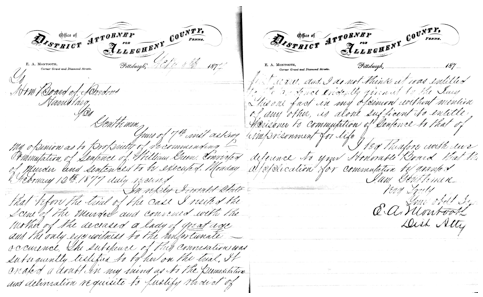 Office of
DISTRICT ATTORNEY
FOR
ALLEGHENY COUNTY,
PENNA.
E. A. MONTOOTH,
Corner Grant and Diamond Streets.
Pittsburgh, 187
To
Hon Board of Pardons
Gentlemen
Yours of 7th inst asking
my opinion as to propriety of recommending
Commutation of Sentence of William convicted
of Murder and sentenced to be executed Monday
February 12th 1877 duly received
In reply I would state
that before the trial of the case I visited the
Scene of the Murder and conversed with the
mother of the deceased a lady of great age
and the only eyewitness to the unfortunate
occurrence. The substance of this conversation was
subsequently testified to by her on the trial. It
created a doubt in my mind as to the premeditation
and deliberation requisite to justify verdict of
Office of
DISTRICT ATTORNEY
FOR
ALLEGHENY COUNTY,
PENNA.
E. A. MONTOOTH,
Corner Grant and Diamond Streets.
Pittsburgh, 187
and I do not think it was entitled
to given to the
fact in my opinion without mention
of any other, is alone sufficient to entitle
Prisoner to commutation of Sentence to that of
imprisonment for life.
I therefore with due
deference to your Honorable Board that the
application for commutation be granted
I am Gentlemen
Very Truly
Your Obt Sv
E. A. Montooth
Dist Atty